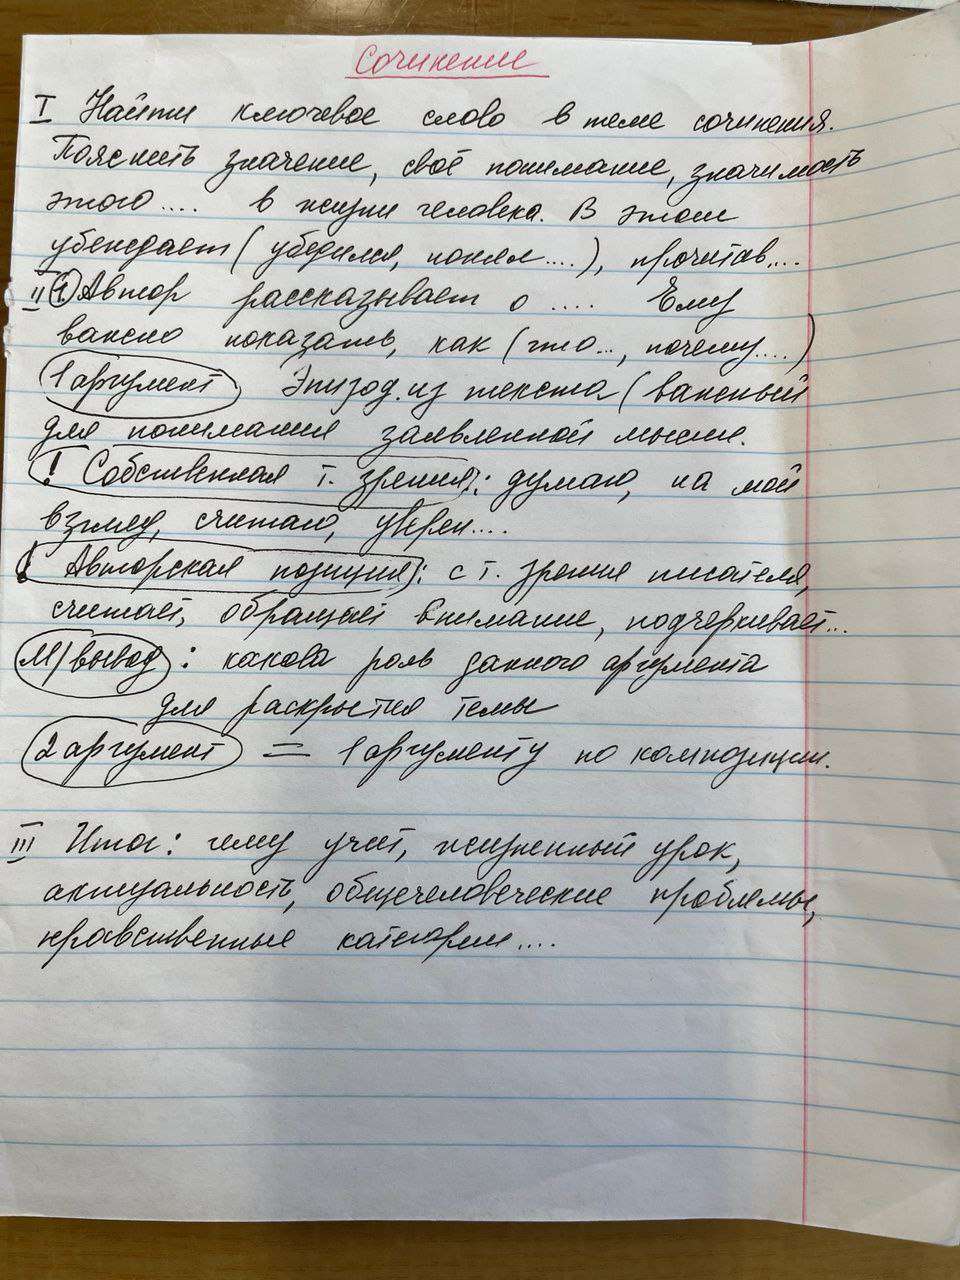 Сочинение
I Найти ключевое слово в теме сочинения.
Пояснить значение, своё понимание, значимость
этого.... в жизни человека. В этом
убеждает (убедился, понял....), прочитав....
II 1 Автор рассказывает о .... Ему
важно показать, как (что..., почему....)
1 аргумент Эпизод из текста (важный
для понимания заявленной мысли.
! Собственная т. зрения: думаю, на мой
взгляд, считаю, уверен....
! Авторская позиция: с т. зрения писателя,
считает, обращает внимание, подчеркивает...
М/вывод: какова роль данного аргумента
для раскрытия темы
2 аргумент = 1 аргументу по композиции.
III Итог: чему учит, жизненный урок,
актуальность, общечеловеческие проблемы,
нравственные категории....